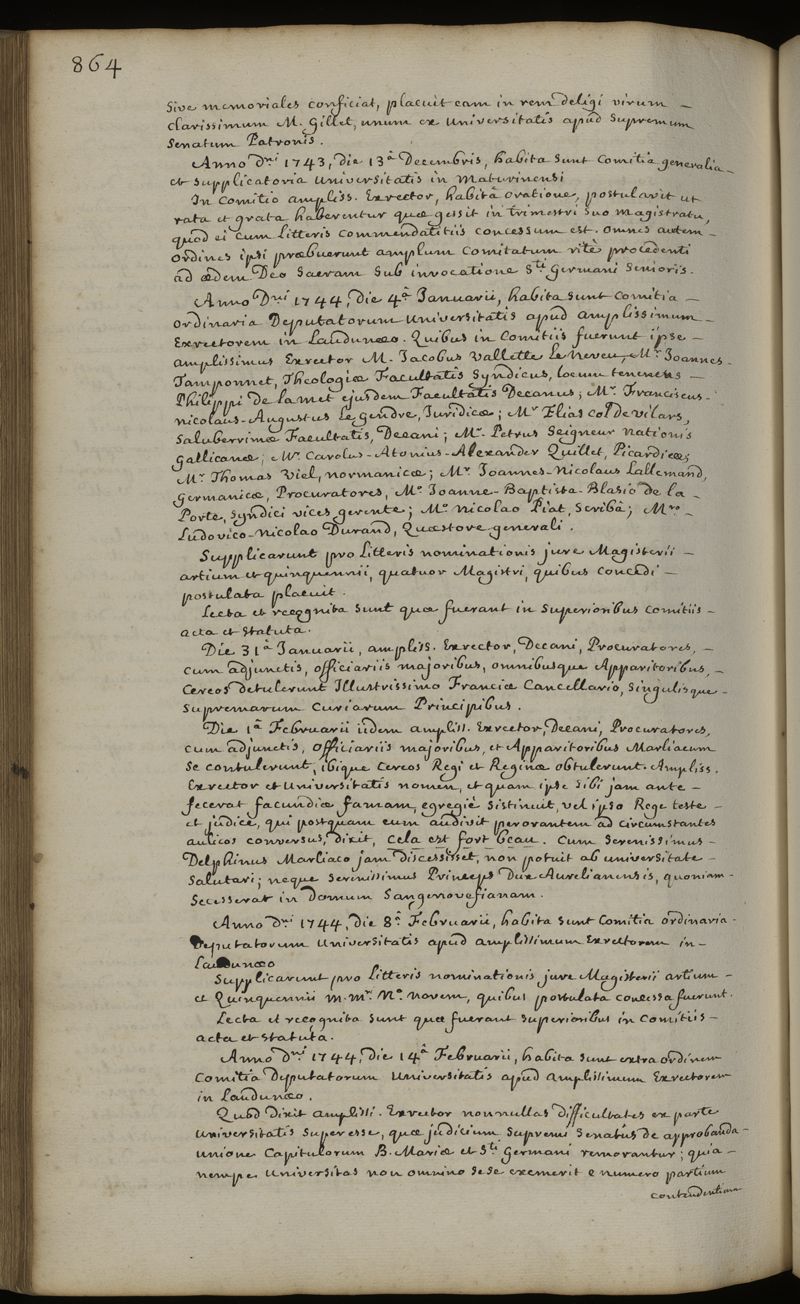 864
sive memoriales conficiat, placuit eam in rem deligi virum –
clarissimum M. Gillet, unum ex Universitatis apud Supremum
Senatum Patronis.
Anno Dni 1743, die 13ª Decembris, habita sunt Comitia generalia –
et supplicatoria Universitatis in Maturinensi
In Comitio ampliss. Exrector, habitâ oratione, postulavit ut
rata et grata haberentur quæ gessit in trimestri suo magistratu,
quod ei cum Litteris commendatitiis concessum est. omnes autem –
ordines ipsi præbuerunt amplum Comitatum ritè procedenti
ad ædem Deo Sacram sub invocatione Sti Germani Senioris.
Anno Dni 1744, die 4ª Januarii, habita sunt Comitia –
ordinaria Deputatorum Universitatis apud amplissimum –
Exrectorem in Laudunæo. Quibus in Comitiis fuerunt ipse –
amplissimus Exrector M. Jacobus Vallette Le Neveu, Mr Joannes –
Tamponnet, Theologiæ Facultatis Syndicus, locum tenenens –
Philippi de Lamet ejusdem Facultatis Decanus; Mr. Franciscus –
nicolaus-Augustus Le gendre, Juridicæ; Mr Elias Col de vilars,
Saluberrimæ Facultatis, Decani; Mr. Petrus Seigneur nationis
gallicanæ; Mr. Carolus-Atonius-Alexander Quillet, Picardicæ;
Mr. Thomas Viel, normanicæ; Mr. Joannes-Nicolaus Lallemand,
germanicæ, Procuratores, Mo. Joanne-Baptista-Blasio de la –
Porte, Syndici vices gerente; Mo. nicolao Piat, Scribâ; Mro –
Ludovico-nicolao Durand, Quæstore generali.
Supplicarunt pro Litteris nominationis jure Magisterii –
artium et quinquennii, quatuor Magistri, quibus concedi –
postulata placuit.
Lecta et recognita sunt quæ fuerant in superioribus comitiis –
acta et statuta.
Die 31ª Januarii, ampliss. Exrector, Decani, Procuratores, –
cum adjunctis, officiariis majoribus, omnibusque Apparitoribus, –
cereos detulerunt Illustrissimo Franciæ Cancellario, singulisque –
supremarum Curiarum Principibus.
Die 1ª Februarii iidem ampliss. Exrector, Decani, Procuratores,
cum adjunctis, officiariis majoribus, et Apparitoribus Marliacum
se contulerunt, ibique cereos Regi et Reginæ obtulerunt. Ampliss.
Exrector et Universitatis nomen, et quam ipse sibi jam ante –
fecerat facundiæ famam, egregiè sistinuit, vel ipso Rege teste –
et judice, qui postquam eum audivit perorantem ad circumstantes
aulicos conversus, dixit, cela est fort beau. Cum serenissimus –
Delphinus Marliaco jam discessisset, non potuit ab universitate –
salutari; neque serenissimus Princeps Dux Aurelianensis, quoniam –
secesserat in Domum Sangenovefianam.
Anno Dni 1744, die 8ª Februarii, habita sunt Comitia ordinaria –
Deputatorum Universitatis apud amplissimum Exrectorem in –
Laudunæo
Supplicarunt pro Litteris nominationis jure Magisterii artium –
et Quinquennii m. mri No. novem, quibus postulata concessa fuerunt.
Lecta et recognita sunt quæ fuerant superioribus in comitiis –
acta et statuta.
Anno Dni 1744, die 14ª Februarii, habita sunt extra ordinem
Comitia Deputatorum Universitatis apud amplissimum Exrectorem
in Laudunæo.
Quod dixit ampliss. Exrector nonnullas difficultates ex parte
Universitatis superesse, quæ judicium supremi senatus de approbanda –
unione Capitulorum B. Mariæ et Sti Germani remorantur; quia –
nempe Universitas non omnino sese exemerit e numero partium
contendentium